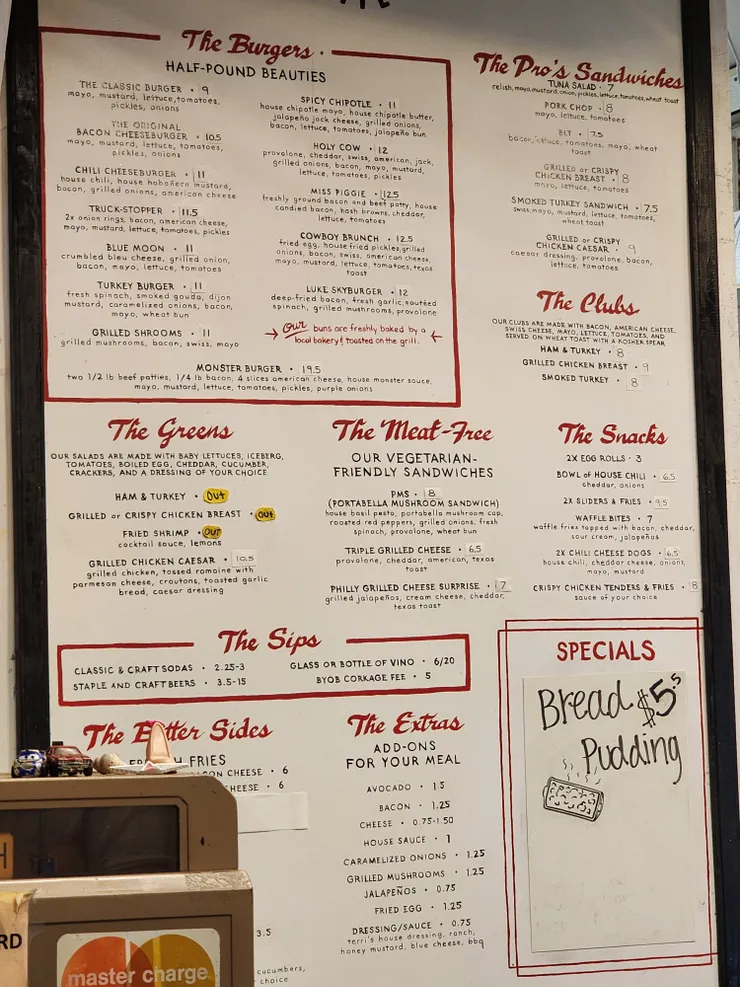 The Burgers
HALF-POUND BEAUTIES
THE CLASSIC BURGER • 9
mayo, mustard, lettuce, tomatoes,
pickles, onions
THE ORIGINAL
BACON CHEESEBURGER • 10.5
mayo, mustard, lettuce, tomatoes,
pickles, onions
CHILI CHEESEBURGER • 11
house chili, house habañero mustard,
bacon, grilled onions, american cheese
TRUCK-STOPPER • 11.5
2x onion rings, bacon, american cheese,
mayo, mustard, lettuce, tomatoes, pickles
BLUE MOON • 11
crumbled bleu cheese, grilled onion,
bacon, mayo, lettuce, tomatoes
TURKEY BURGER • 11
fresh spinach, smoked gouda, dijon
mustard, caramelized onions, bacon,
mayo, wheat bun
GRILLED SHROOMS • 11
grilled mushrooms, bacon, swiss, mayo
SPICY CHIPOTLE • 11
house chipotle mayo, house chipotle butter,
jalapeño jack cheese, grilled onions,
bacon, lettuce, tomatoes, jalapeño bun
HOLY COW • 12
provolone, cheddar, swiss, american, jack,
grilled onions, bacon, mayo, mustard,
lettuce, tomatoes, pickles
MISS PIGGIE • 12.5
freshly ground bacon and beef patty, house
candied bacon, hash browns, cheddar,
lettuce, tomatoes
COWBOY BRUNCH • 12.5
fried egg, house fried pickles, grilled
onions, bacon, swiss, american cheese,
mayo, mustard, lettuce, tomatoes, texas
toast
LUKE SKYBURGER • 12
deep-fried bacon, fresh garlic, sautéed
spinach, grilled mushrooms, provolone
Our buns are freshly baked by a
local bakery & toasted on the grill.
MONSTER BURGER • 19.5
two 1/2 lb beef patties, 1/4 lb bacon, 4 slices american cheese, house monster sauce,
mayo, mustard, lettuce, tomatoes, pickles, purple onions
The Pro's Sandwiches
TUNA SALAD • 7
relish, mayo, mustard, onion, pickles, lettuce, tomatoes, wheat toast
PORK CHOP • 8
mayo, lettuce, tomatoes
BLT • 7.5
bacon, lettuce, tomatoes, mayo, wheat
toast
GRILLED or CRISPY
CHICKEN BREAST • 8
mayo, lettuce, tomatoes
SMOKED TURKEY SANDWICH • 7.5
swiss, mayo, mustard, lettuce, tomatoes,
wheat toast
GRILLED or CRISPY
CHICKEN CAESAR • 9
caesar dressing, provolone, bacon,
lettuce, tomatoes
The Clubs
OUR CLUBS ARE MADE WITH BACON, AMERICAN CHEESE,
SWISS CHEESE, MAYO, LETTUCE, TOMATOES, AND
SERVED ON WHEAT TOAST WITH A KOSHER SPEAR
HAM & TURKEY • 8
GRILLED CHICKEN BREAST • 9
SMOKED TURKEY • 8
The Greens
OUR SALADS ARE MADE WITH BABY LETTUCES, ICEBERG,
TOMATOES, BOILED EGG, CHEDDAR, CUCUMBER,
CRACKERS, AND A DRESSING OF YOUR CHOICE
HAM & TURKEY • OUT
GRILLED or CRISPY CHICKEN BREAST • OUT
FRIED SHRIMP • OUT
cocktail sauce, lemons
GRILLED CHICKEN CAESAR • 10.5
grilled chicken, tossed romaine with
parmesan cheese, croutons, toasted garlic
bread, caesar dressing
The Meat-Free
OUR VEGETARIAN-
FRIENDLY SANDWICHES
PMS • 8
(PORTABELLA MUSHROOM SANDWICH)
house basil pesto, portabella mushroom cap,
roasted red peppers, grilled onions, fresh
spinach, provolone, wheat bun
TRIPLE GRILLED CHEESE • 6.5
provolone, cheddar, american, texas
toast
PHILLY GRILLED CHEESE SURPRISE • 7
grilled jalapeños, cream cheese, cheddar,
texas toast
The Snacks
2X EGG ROLLS • 3
BOWL of HOUSE CHILI • 6.5
cheddar, onions
2X SLIDERS & FRIES • 9.5
WAFFLE BITES • 7
waffle fries topped with bacon, cheddar,
sour cream, jalapeños
2X CHILI CHEESE DOGS • 6.5
house chili, cheddar cheese, onions,
mayo, mustard
CRISPY CHICKEN TENDERS & FRIES • 8
sauce of your choice
The Sips
CLASSIC & CRAFT SODAS • 2.25-3
STAPLE AND CRAFT BEERS • 3.5-15
GLASS OR BOTTLE OF VINO • 6/20
BYOB CORKAGE FEE • 5
The Better Sides
FRIES
CHEESE • 6
CHEESE • 6
3.5
cucumbers,
choice
The Extras
ADD-ONS
FOR YOUR MEAL
AVOCADO • 1.5
BACON • 1.25
CHEESE • 0.75-1.50
HOUSE SAUCE • 1
CARAMELIZED ONIONS • 1.25
GRILLED MUSHROOMS • 1.25
JALAPEÑOS • 0.75
FRIED EGG • 1.25
DRESSING/SAUCE • 0.75
terri's house dressing, ranch,
honey mustard, blue cheese, bbq
SPECIALS
Bread $5.5
Pudding
master charge